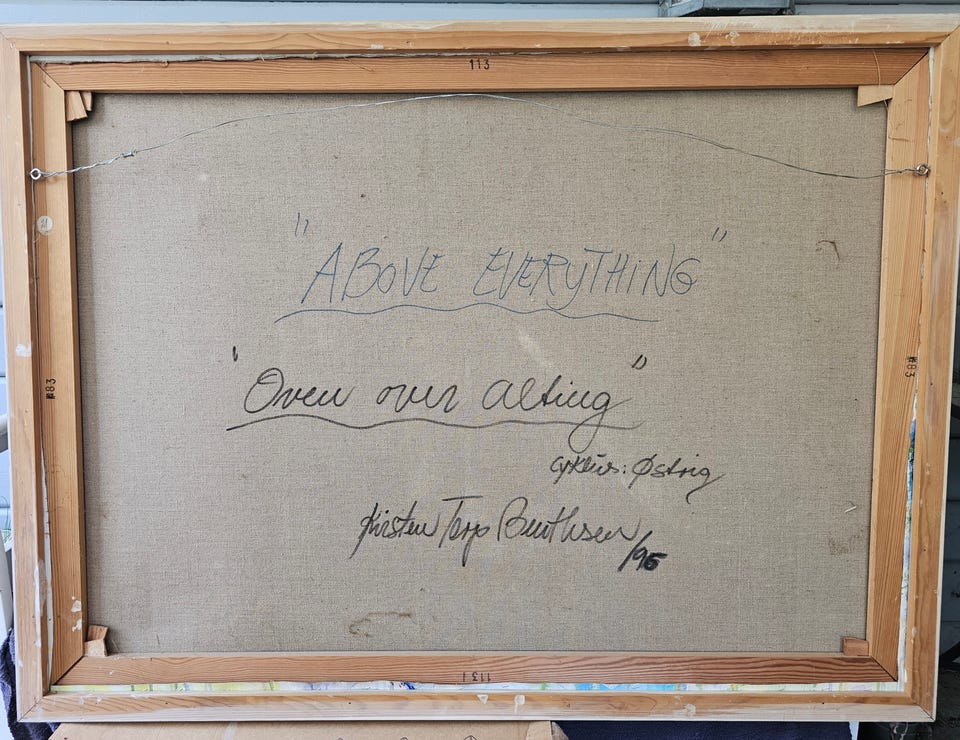 113
"ABOVE EVERYTHING"
"Oven over alting"
cyklus: Østrig
Kirsten Terp Benthsen /95
83
83
113